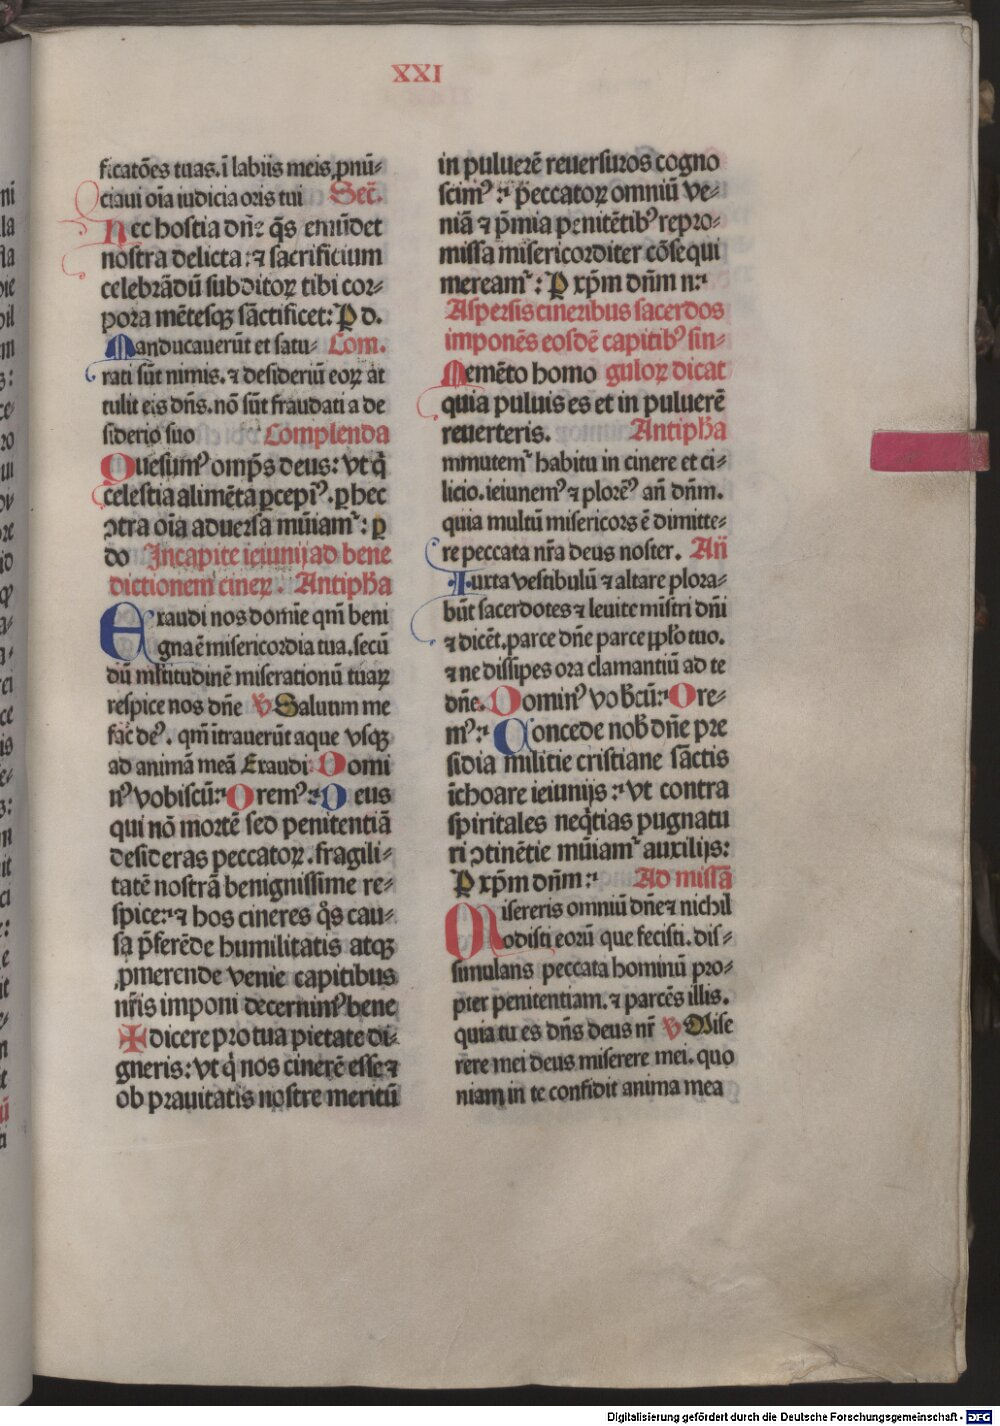 XXI
ficatões tuas. ĩ labiis meis ꝓnũ-
ciaui oĩa iudicia oris tui Secr̄.
Hec hostia dñe q̃s emũdet
nostra delicta: ⁊ sacrificium
celebrãdũ subditoꝝ tibi cor-
pora mẽtesqꝫ sãctificet: P d.
Manducauerũt et satu- Com.
rati sũt nimis. ⁊ desideriũ eoꝝ at
tulit eis dñs. nõ sũt fraudati a de
siderio suo Complenda
Quesumꝰ omp̃s deus: vt q̃
celestia alimẽta ꝑcepimꝰ. ꝑ hec
ↄtra oĩa aduersa mũiamᷣ: ꝑ
do Incapite ieiunij ad bene
dictionem cineꝝ. Antipha
Exaudi nos domĩe qm̃ beni
gna ẽ misericordia tua. secũ
dũ mltitudinẽ miserationũ tuaꝝ
respice nos dñe ℣ Saluum me
fac deꝰ. qm̃ ĩtrauerũt aque vsqꝫ
ad animã meã Exaudi Domi
nꝰ vobiscũ: Oremꝰ: Deus
qui nõ mortẽ sed penitentiã
desideras peccatoꝝ. fragili-
tatẽ nostrã benignissime re-
spice: ⁊ hos cineres q̃s cau-
sa p̃ferẽde humilitatis atqꝫ
ꝓmerende venie capitibus
nr̃is imponi decernimꝰ bene
✠ dicere pro tua pietate di-
gneris: vt q̃ nos cinerẽ esse ⁊
ob prauitatis nostre meritũ
in puluerẽ reuersuros cogno
scimꝰ: peccatoꝝ omniũ ve-
niã ⁊ p̃mia penitẽtibꝰ repro-
missa misericorditer cõsequi
mereamᷣ: P xp̃m dñm n:
Aspersis cineribus sacerdos
imponẽs eosdẽ capitibꝰ sin-
Memẽto homo guloꝝ dicat
quia puluis es et in puluerẽ
reuerteris. Antipha
mmutemᷣ habitu in cinere et ci-
licio. ieiunemꝰ ⁊ ploremꝰ añ dñm.
quia multũ misericors ẽ dimitte-
re peccata nr̃a deus noster. Añ
Iuxta vestibulũ ⁊ altare plora-
bũt sacerdotes ⁊ leuite mĩstri dñi
⁊ dicẽt. parce dñe parce pplo tuo.
⁊ ne dissipes ora clamantiũ ad te
dñe. Dominꝰ vobcũ: Ore-
mꝰ: Concede nob̃ dñe pre
sidia militie cristiane sãctis
ĩchoare ieiunijs: vt contra
spiritales neq̃tias pugnatu
ri ↄtinẽtie mũiamᷣ auxilijs:
P xp̃m dñm: Ad missã
Misereris omniũ dñe ⁊ nichil
odisti eorũ que fecisti. dis-
simulans peccata hominũ pro-
pter penitentiam. ⁊ parcẽs illis.
quia tu es dñs deus nr̃ ℣ Mise
rere mei deus miserere mei. quo
niam in te confidit anima mea
Digitalisierung gefördert durch die Deutsche Forschungsgemeinschaft - DFG